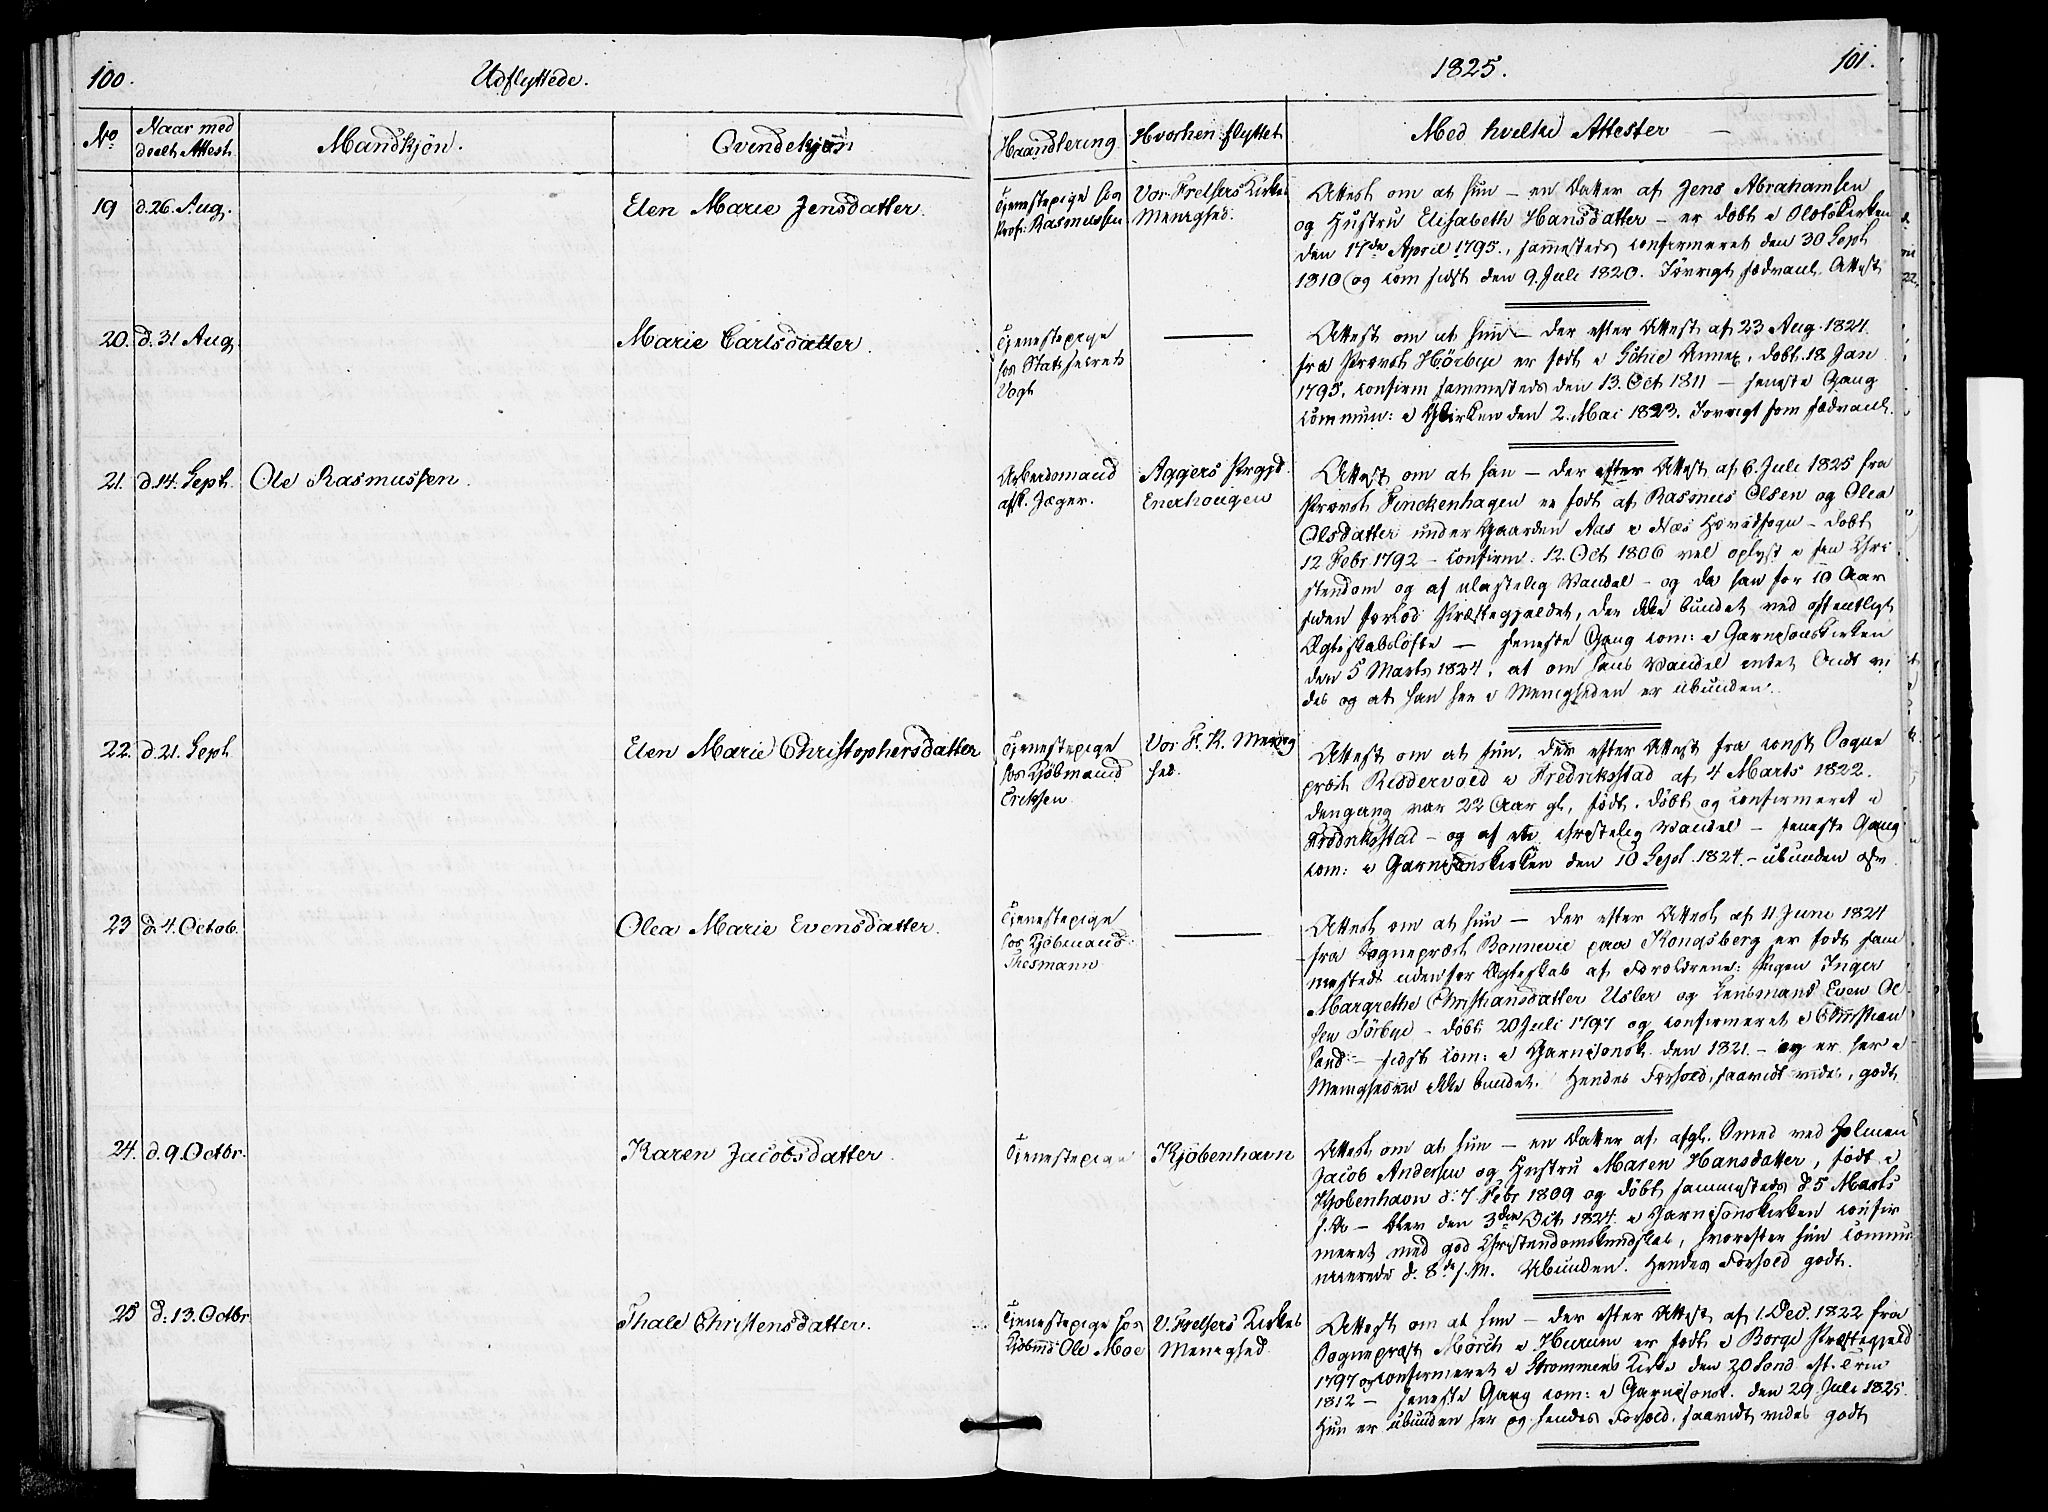 100.
Udflyttede.
1825.
101.
No
Naar med
deelt Attest.
Mandkjön.
Qvindekjön
Haandtering
Hvorhen flyttet
Med hvilke Attester
19
d. 26. Aug.
Elen Marie Jensdatter.
Tjenestepige hos
Prof: Rasmussen.
Vor Frelsers Kirkes
Menighed.
Attest om at hun – en Datter af Jens Abrahamsen
og Hustru Elisabeth Hansdatter – er döbt i
den 17de April 1795, sammesteds confirmeret den 30 Sept
1810 og com sidst den 9. Juli 1820. Iövrigt sædvanl. Attest
20.
d. 31 Aug.
Marie Carlsdatter.
Tjenestepige
hos Statssecret.
Vogt
Attest om at hun – der efter Attest af 23 Aug. 1824
fra Provst Hörbye er födt i Annex, döbt 18 Jan
1795, confirm sammesteds den 13. Oct 1811 – seneste Gang
commun: i Kirken den 2. Mai 1823. Iövrigt som sædvanl.
21.
d. 14. Sept.
Ole Rasmussen.
Arbeidsmand
afsk. Jæger.
Aggers Prgjd.
Enerhougen
Attest om at han – der efter Attest af 6. Juli 1825 fra
Provst Finckenhagen er födt af Rasmus Olsen og Olea
Olsdatter under Gaarden Aas i Næs Hovedsogn – döbt
12 Febr 1792 – confirm. 12. Oct 1806 vel oplyst i sin Chri
stendom og af ulastelig Vandel – og da han for 10 Aar
siden forlod Præstegjældet, var ikke bundet ved offentligt
Ægteskabslöfte – seneste Gang com: i Garnisonskirken
den 5 Marts 1824, at om hans Vandel intet Ondt vi
des og at han her i Menigheden er ubunden.
22.
d. 21. Sept
Elen Marie Christophersdatter
Tjenestepige
hos Kjöbmand
Eriksen
Vor F. K. Menig
hed.
Attest om at hun, der efter Attest fra const Sogne
præst Riddervold i Fredriksstad af 4 Marts 1822.
dengang var 22 Aar gl, födt, döbt og confirmeret i
Fredriksstad – og af christelig Vandel – seneste Gang
com: i Garnisonskirken den 10 Sept. 1824. – ubunden osv.
23
d. 4. Octob.
Olea Marie Evensdatter.
Tjenestepige
hos Kjöbmand
Thesmann
Attest om at hun – der efter Attest af 11 Juni 1824
fra Sognepræst Bonnevie paa Kongsberg er födt sam
mestedt udenfor Ægteskab af Forældrene: Pigen Inger
Margrethe Christiansdatter Usler og Lensmand Even Ol
sen – döbt 20 Juli 1797 og confirmeret i Christian
sand – sidst com: i Garnisonsk. den 1821. – og er her i
Menigheden ikke bundet. Hendes Forhold, saavidt vides, godt
24.
d. 9. Octbr.
Karen Jacobsdatter.
Tjenestepige
Kjöbenhavn
Attest om at hun – en Datter af, afgl. Smed ved Holmen
Jacob Andersen og Hustru Maren Hansdatter, födt i
Kjobenhavn d: 7 Febr 1809 og döbt sammesteds d 5 Marts
s. A – blev den 3die Oct 1824 i Garnisonskirken confir
meret med god Christendomskundskab, hvorefter hun commu
nicerede d. 8de s. M. Ubunden. Hendes Forhold godt.
25
d. 13. Octbr
Thale Christensdatter.
Tjenestepige hos
Kjöbmd Ole Moe
V. Frelsers Kirkes
Menighed.
Attest om at hun – der efter Attest af 1. Dec. 1822 fra
Sognepræst Mörch i Hurum er födt i Borge Præstegjeld
1797 og confirmeret i Strömmens Kirke den 20 Sönd. eft. Trin
1812 – seneste Gang com: i Garnisonsk. den 29 Juli 1825.
Hun er ubunden her og hendes Forhold, saavidt vides godt